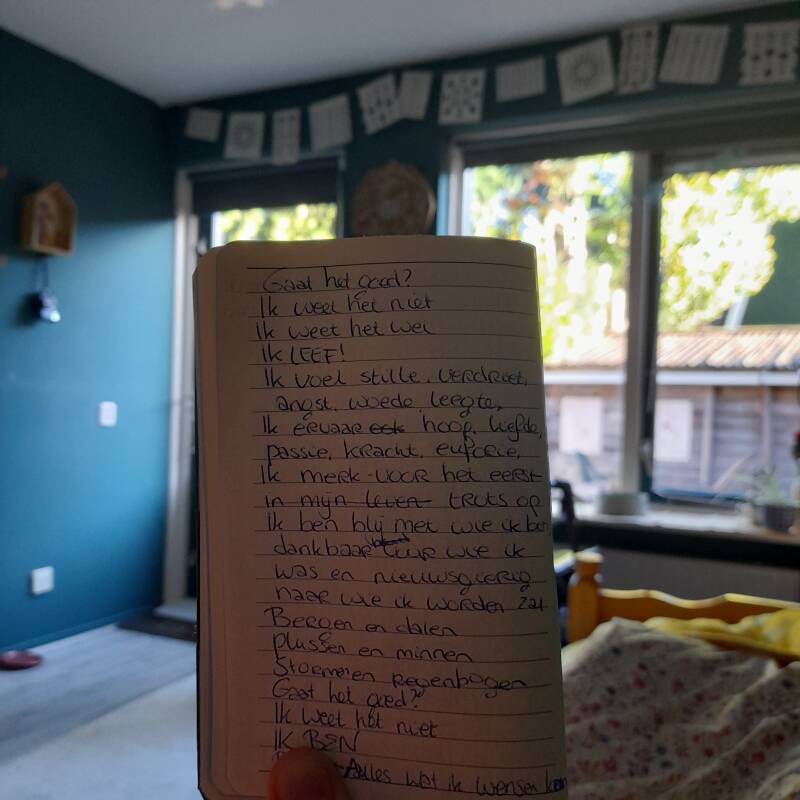 Gaat het goed?
Ik weet het niet
Ik weet het wel
Ik LEEF!
Ik voel stilte, verdriet,
angst, woede, leegte,
Ik ervaar ook hoop, liefde,
passie, kracht, euforie,
Ik merk voor het eerst
in mijn leven trots op
Ik ben blij met wie ik ben
dankbaar wie ik
was en nieuwsgierig
naar wie ik worden zal
Bergen en dalen
plussen en minnen
Stormen en regenbogen
Gaat het goed?
Ik weet het niet
IK BEN
Alles wat ik wensen kan